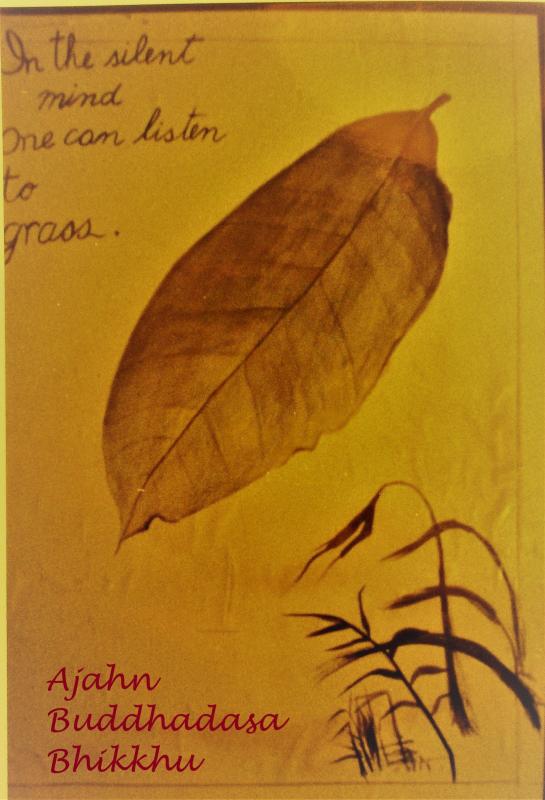 In the silent
mind
One can listen
to
grass.
Ajahn
Buddhadasa
Bhikkhu